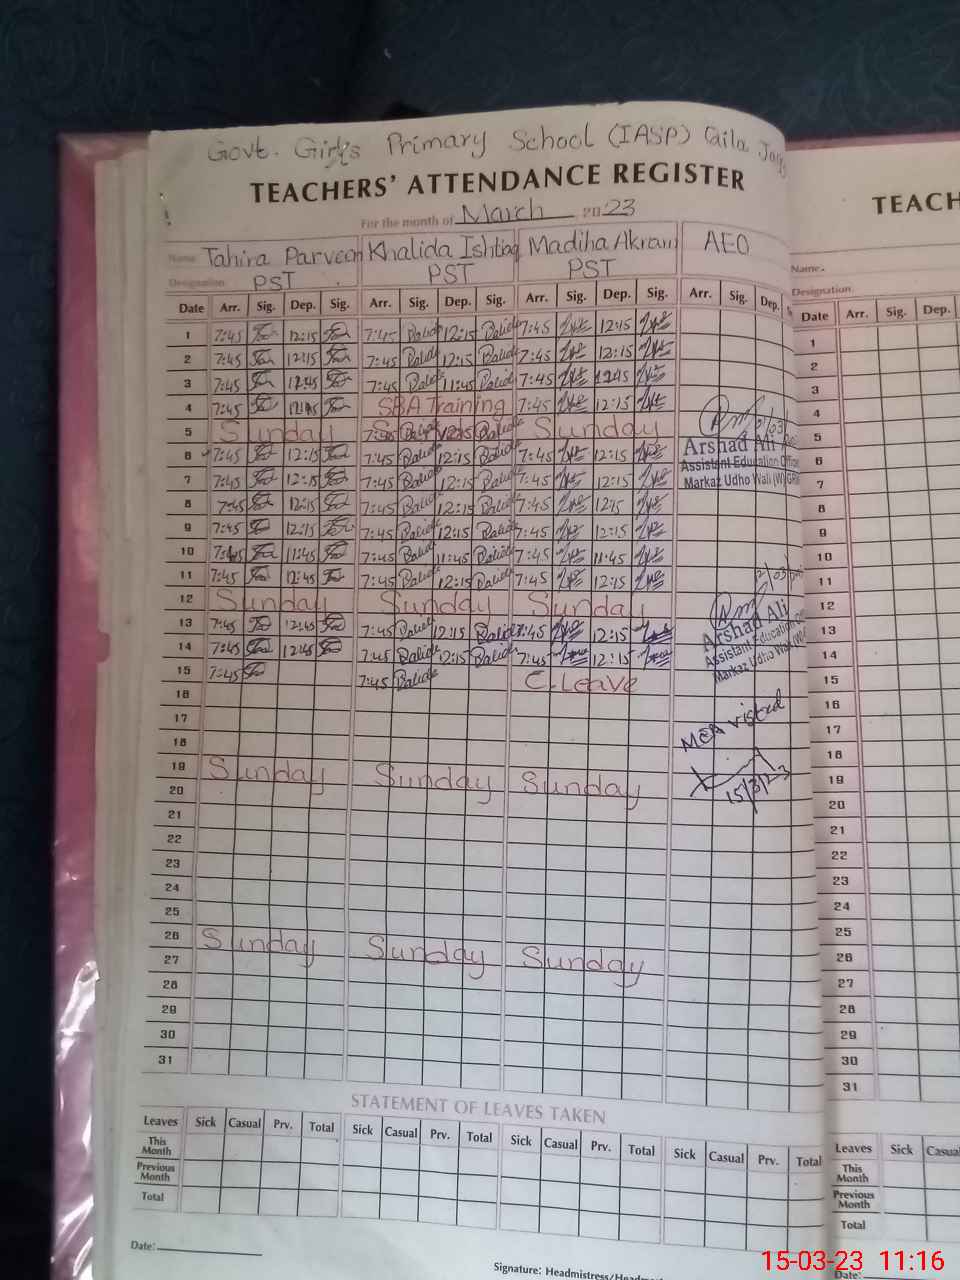 Govt. Girls Primary School (IASP) Qila
TEACHERS' ATTENDANCE REGISTER
For the month of March 2023
Name. Tahira Parveen Khalida Ishtiaq Madiha Akram AEO
Designation. PST PST PST
Date Arr. Sig. Dep. Sig. Arr. Sig. Dep. Sig. Arr. Sig. Dep. Sig. Arr. Sig. Dep.
1 7:45 12:15 7:45 12:15 7:45 12:15
2 7:45 12:15 7:45 12:15 7:45 12:15
3 7:45 7:45 11:45 7:45
4 7:45 SBA Training 7:45 12:15
5 Sunday Sunday
6 7:45 12:15 7:45 12:15 7:45 12:15
7 7:45 12:15 7:45 12:15 7:45 12:15
8 7:45 12:15 7:45 12:15 7:45 12:15
9 7:45 12:15 7:45 12:15 7:45 12:15
10 7:45 11:45 7:45 11:45 7:45 11:45
11 7:45 12:45 7:45 12:15 7:45 12:15
12 Sunday Sunday Sunday
13 7:45 12:45 7:45 12:15 7:45 12:15
14 7:45 12:45 7:45 12:15 7:45 12:15
15 7:45 7:45 C.Leave
16
17
18
19 Sunday Sunday Sunday
20
21
22
23
24
25
26 Sunday Sunday Sunday
27
28
29
30
31
Arshad Ali
Assistant Education
Markaz Udho Wali (W)
Arshad Ali
Assistant Education
Markaz Udho Wali (W)
MEA visted
15/3/23
STATEMENT OF LEAVES TAKEN
Leaves Sick Casual Prv. Total Sick Casual Prv. Total Sick Casual Prv. Total Sick Casual Prv. Total
This Month
Previous Month
Total
Date:
Signature: Headmistress/
TEACH
Name.
Designation
Date Arr. Sig. Dep.
1
2
3
4
5
6
7
8
9
10
11
12
13
14
15
16
17
18
19
20
21
22
23
24
25
26
27
28
29
30
31
Leaves Sick Casual
This Month
Previous Month
Total
Date:
15-03-23 11:16